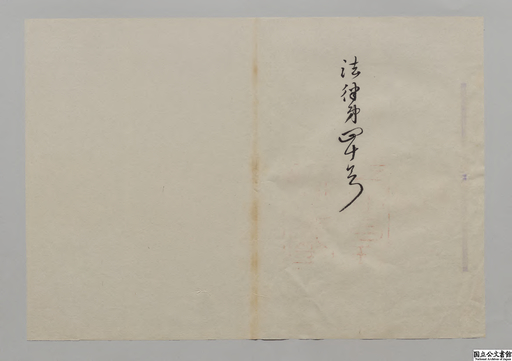 法律第四十号
国立公文書館
National Archives of Japan